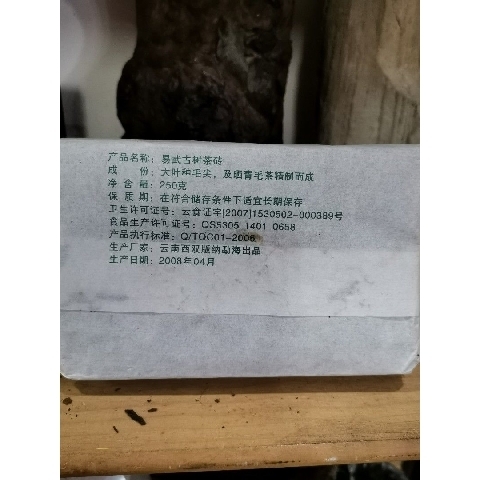 产品名称：易武古树茶砖
成　份：大叶种毛尖，及晒青毛茶精制而成
净 含 量：250克
保 质 期：在符合储存条件下适宜长期保存
卫生许可证号：云食证字[2007]1530502-000389号
食品生产许可证号：QS5305 1401 0658
产品执行标准：Q/TQC01-2006
生产厂家：云南西双版纳勐海出品
生产日期：2008年04月